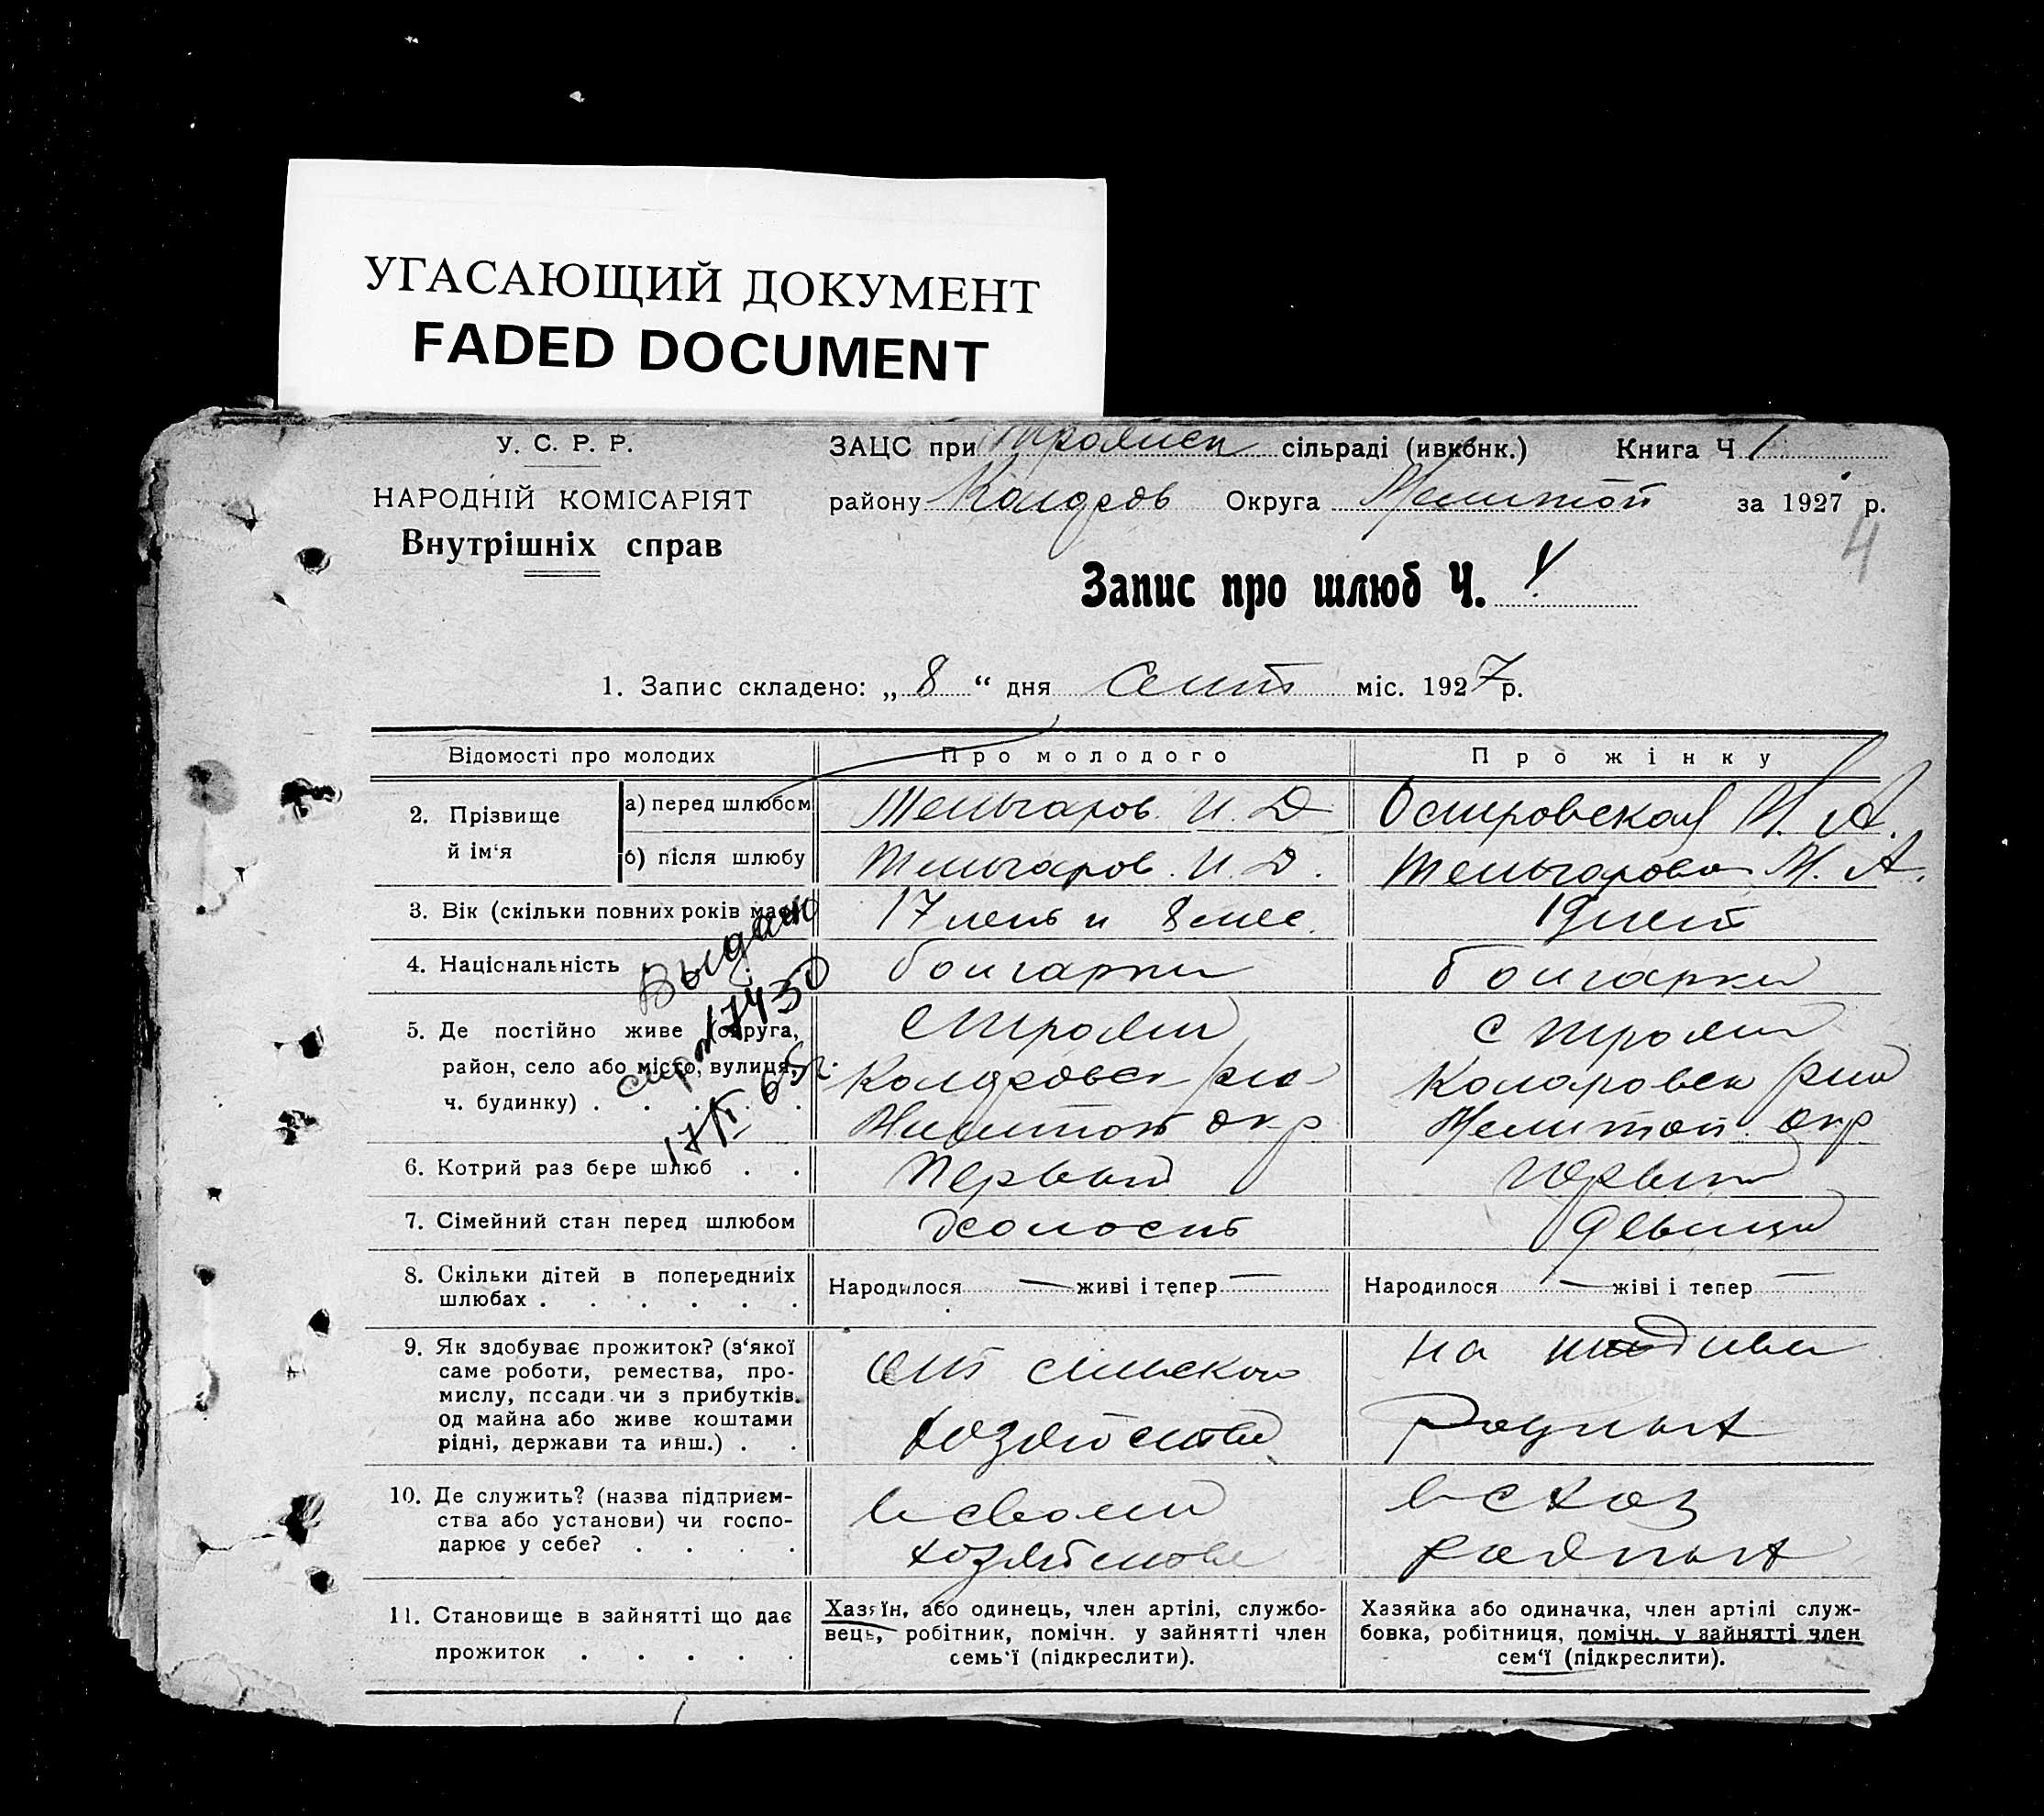 УГАСАЮЩИЙ ДОКУМЕНТ
FADED DOCUMENT
У. С. Р. Р.
НАРОДНІЙ КОМІСАРІЯТ
Внутрішніх справ
ЗАЦС при Троянск сільраді (ивконк.) Книга Ч 1
району Коларов Округа Мелитоп за 1927 р.
4
Запис про шлюб Ч.
1. Запис складено: „ 8 “ дня Сент міс. 1927 р.
Відомості про молодих Про молодого Про жінку
2. Прізвище й ім‘я
а) перед шлюбом Тельчаров И. Д Островская М. А.
б) після шлюбу Тельчаров И. Д. Тельчарова М. А.
3. Вік (скільки повних років має) 17 лет и 8 мес. 19 лет
4. Національність болгарин болгарка
5. Де постійно живе (округа,
район, село або місто, вулиця,
ч. будинку) . . . . .
с Троян
Коларовск р-на
Мелитоп окр
с Троян
Коларовск р-на
Мелитоп окр
Выдано
17430
65г.
6. Котрий раз бере шлюб . . Первый Первый
7. Сімейний стан перед шлюбом холост девица
8. Скільки дітей в попередниіх
шлюбах . . . . . .
Народилося — живі і тепер —
Народилося — жіві і тепер —
9. Як здобуває прожиток? (з‘якої
саме роботи, ремества, про-
мислу, пссади чи з прибутків.
од майна або живе коштами
рідні, держави та инш.) . .
от сельского
хозяйства
на
родных
10. Де служить? (назва підприєм-
ства або установи) чи госпо-
дарює у себе? . . . .
в своем
хозяйстве
в с хоз
родных
11. Становище в зайнятті що дає
прожиток . . . . .
Хазяїн, або одинець, член артілі, службо-
вець, робітник, помічн. у зайнятті член
семь‘ї (підкреслити).
Хазяйка або одиначка, член артілі служ-
бовка, робітниця, помічн. у зайнятті член
сем‘ї (підкреслити).